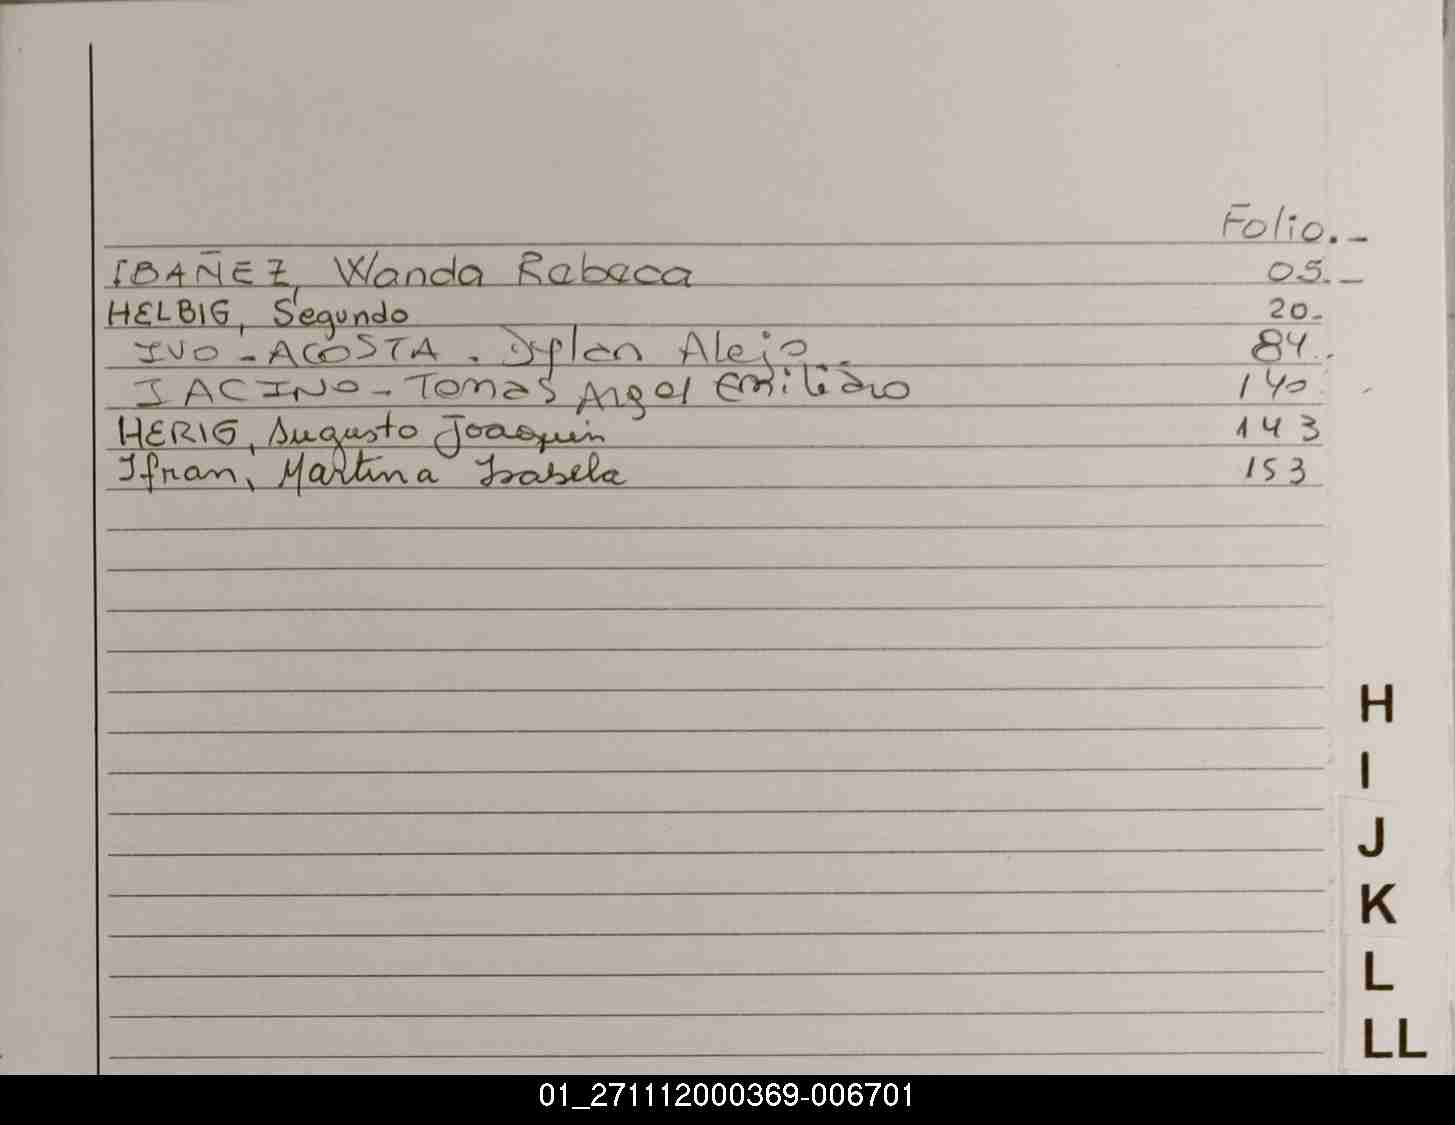 Folio._
IBAÑEZ, Wanda Rebeca 05._
HELBIG, Segundo 20-
IVO - ACOSTA. Dylan Alejo 84..
IACINO - Tomas Angel Emiliano 140.
HERIG, Augusto Joaquin 143
Ifran, Martina Isabela 153
H
I
J
K
L
LL
01_271112000369-006701